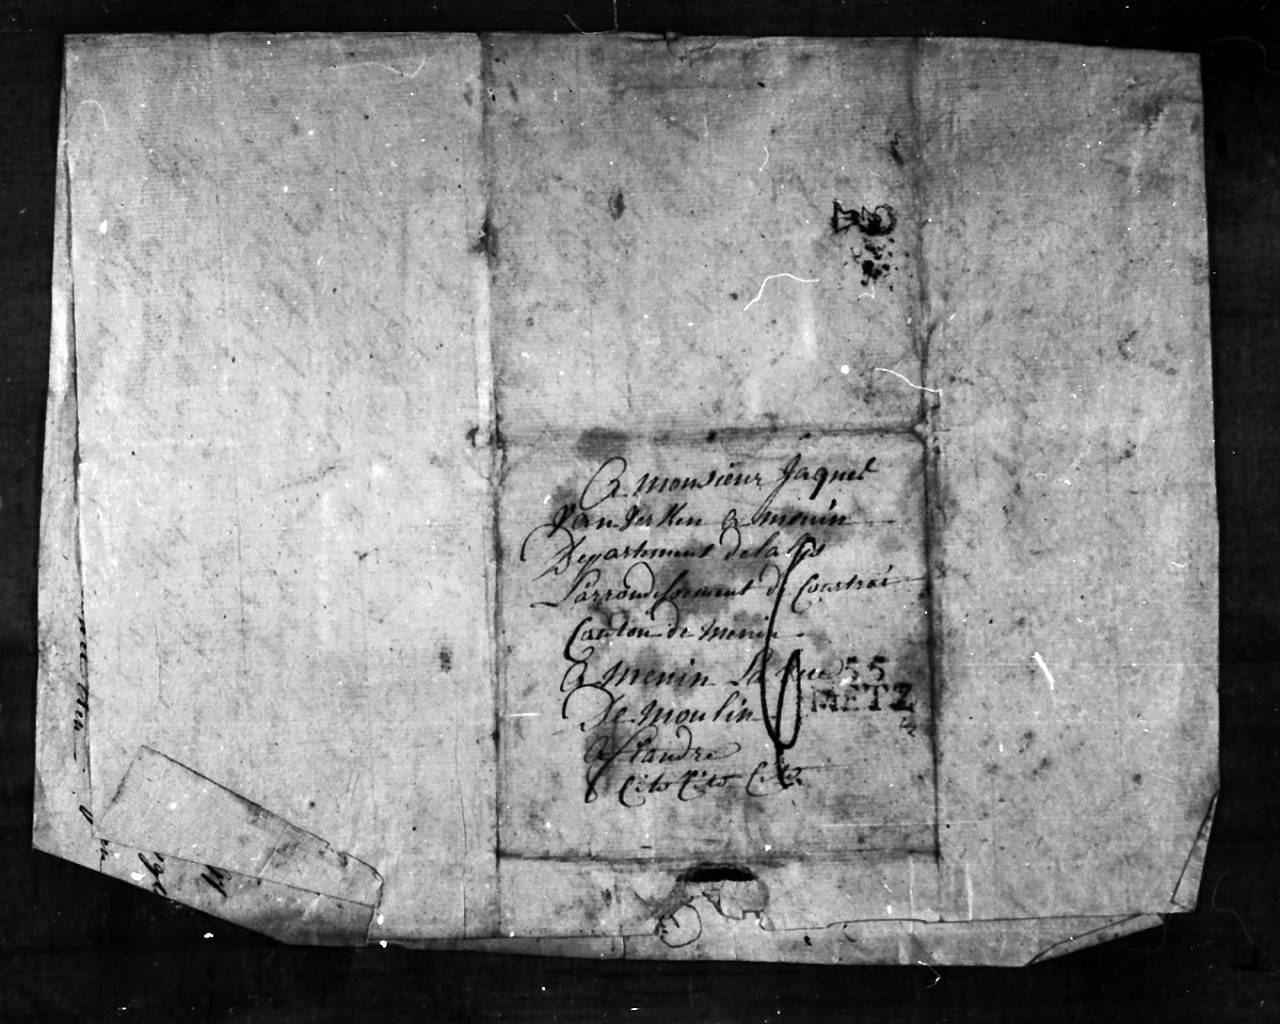 A monsieur Jaques
van Der Ken a menin
Departement de la Lis
L'arrondissement de Courtrai
Canton de Menin
A menin la rue
De Moulin
a flandre
Cito Cito Cito
55
METZ